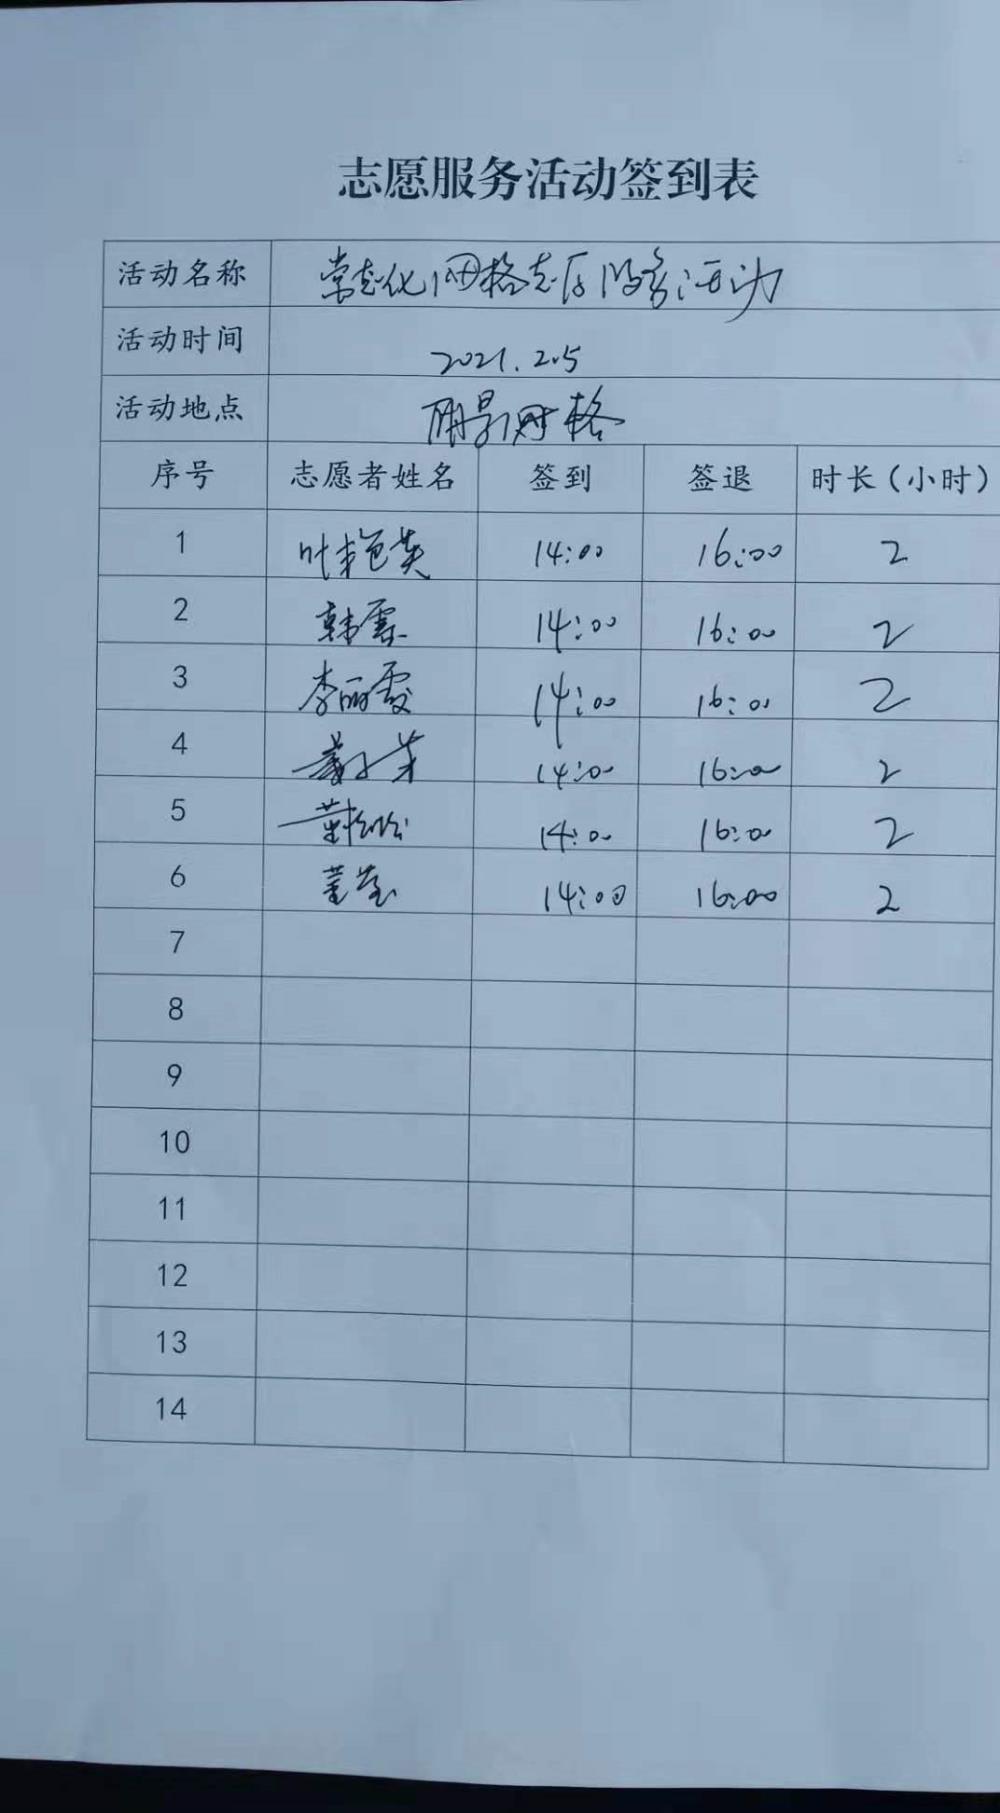 志愿服务活动签到表
活动名称 常态化网格志愿服务活动
活动时间 2021.2.5
活动地点 丽景网格
序号 志愿者姓名 签到 签退 时长（小时）
1 叶艳英 14:00 16:00 2
2 韩霖 14:00 16:00 2
3 李丽霞 14:00 16:00 2
4 14:00 16:00 2
5 14:00 16:00 2
6 14:00 16:00 2
7
8
9
10
11
12
13
14